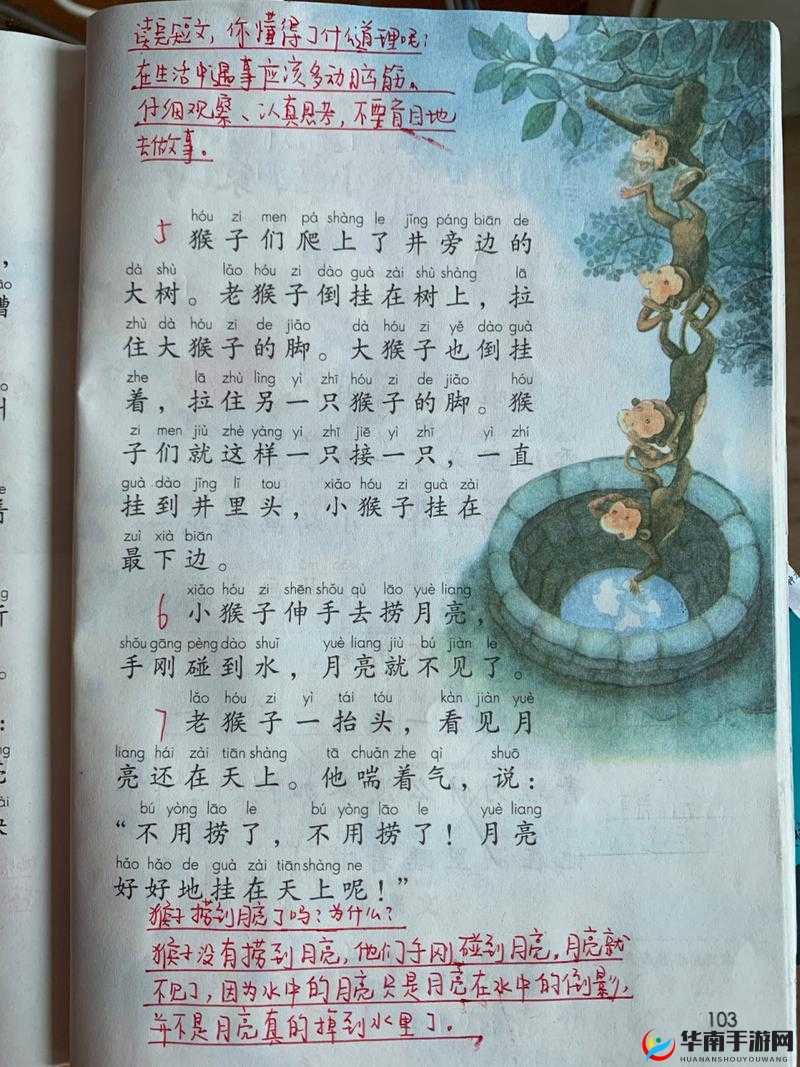 读完短文，你懂得了什么道理呢？
在生活中遇事应该多动脑筋。
仔细观察、认真思考，不要盲目地
去做事。
5 hóu zi men pá shàng le jǐng páng biān de
猴子们爬上了井旁边的
dà shù lǎo hóu zi dào guà zài shù shàng lā
大树。老猴子倒挂在树上，拉
zhù dà hóu zi de jiǎo dà hóu zi yě dào guà
住大猴子的脚。大猴子也倒挂
zhe lā zhù lìng yì zhī hóu zi de jiǎo hóu
着，拉住另一只猴子的脚。猴
zi men jiù zhè yàng yì zhī jiē yì zhī yì zhí
子们就这样一只接一只，一直
guà dào jǐng lǐ tou xiǎo hóu zi guà zài
挂到井里头，小猴子挂在
zuì xià biān
最下边。
xiǎo hóu zi shēn shǒu qù lāo yuè liang
6 小猴子伸手去捞月亮，
shǒu gāng pèng dào shuǐ yuè liang jiù bú jiàn le
手刚碰到水，月亮就不见了。
lǎo hóu zi yì tái tóu kàn jiàn yuè
7 老猴子一抬头，看见月
liang hái zài tiān shàng tā chuǎn zhe qì shuō
亮还在天上。他喘着气，说：
bú yòng lāo le bú yòng lāo le yuè liang
“不用捞了，不用捞了！月亮
hǎo hǎo de guà zài tiān shàng ne
好好地挂在天上呢！”
猴子捞到月亮了吗？为什么？
猴子没有捞到月亮，他们手刚碰到月亮。月亮就
不见了，因为水中的月亮只是月亮在水中的倒影，
并不是月亮真的掉到水里了。
103
华南手游网
HUANANSHOUYOUWANG